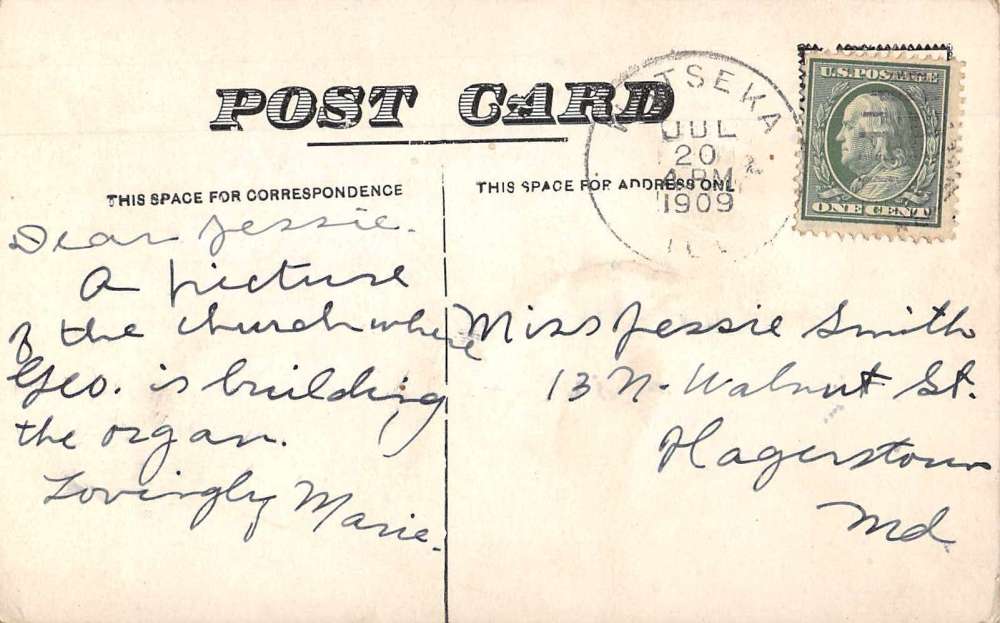 POST CARD
WATSEKA
JUL
20
4 PM
1909
ILL
U.S. POSTAGE
ONE CENT
THIS SPACE FOR CORRESPONDENCE
THIS SPACE FOR ADDRESS ONLY
Dear Jessie.
A picture
of the church where
Geo. is building
the organ.
Lovingly Marie.
Miss Jessie Smith
13 N. Walnut St.
Hagerstown
Md